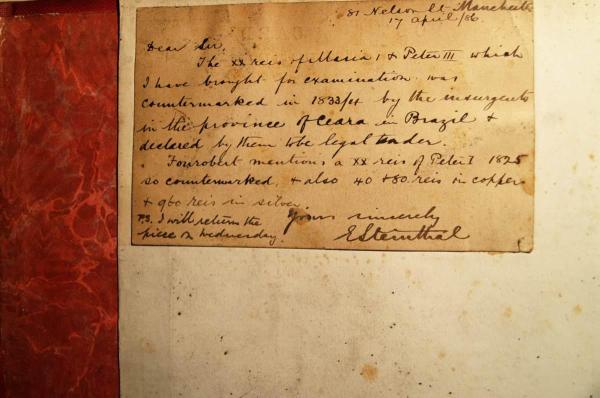 81 Nelson St Manchester
17 April /86.
Dear Sir,
The XX reis of Maria I & Peter III which
I have brought for examination was
countermarked in 1833/34 by the insurgents
in the province of Ceara in Brazil &
declared by them to be legal tender.
Fourobert mentions a XX reis of Peter I 1825
so countermarked, & also 40 & 80 reis in copper
& 960 reis in silver.
Yours sincerely
P.S. I will return the
piece on Wednesday.
E Sternthal